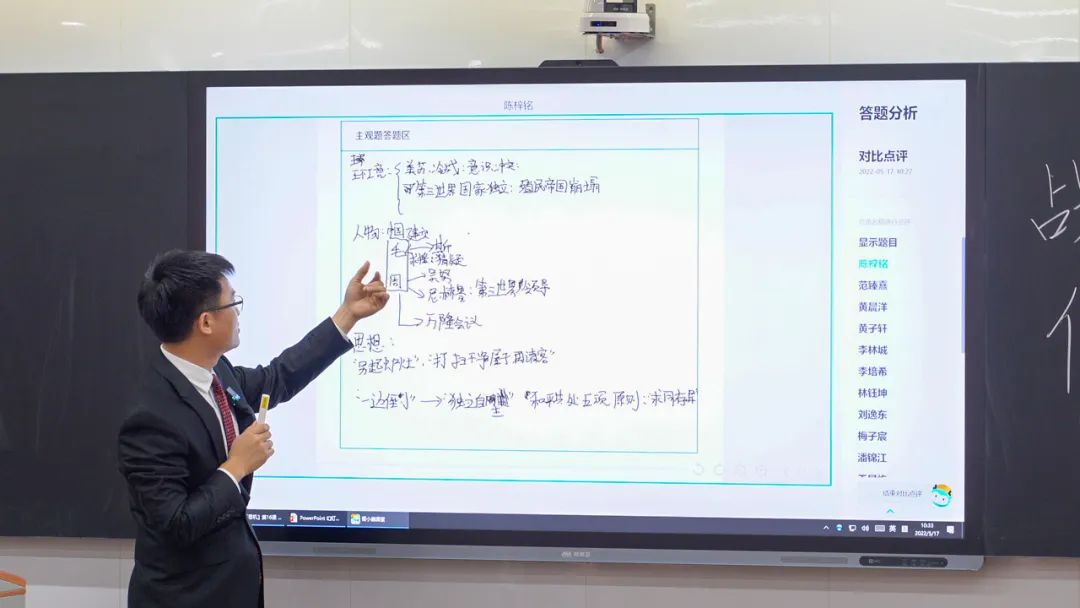 陈梓铭
主观题答题区
环境:美苏冷战:意识冲突
第三世界国家独立:殖民帝国崩塌
人物:
毛
周
尼赫鲁:第三世界领导
万隆会议
思想:
"另起炉灶","打扫干净屋子再请客"
"一边倒" → "独立自主" "和平共处五项原则:求同存异
答题分析
对比点评
2022-05-17 10:27
显示题目
陈梓铭
范臻熹
黄晨洋
黄子轩
李林城
李培希
林钰坤
刘逸东
梅子宸
潘锦江
结束对比点评
PowerPoint 幻灯...
英
10:33
2022/5/17
战